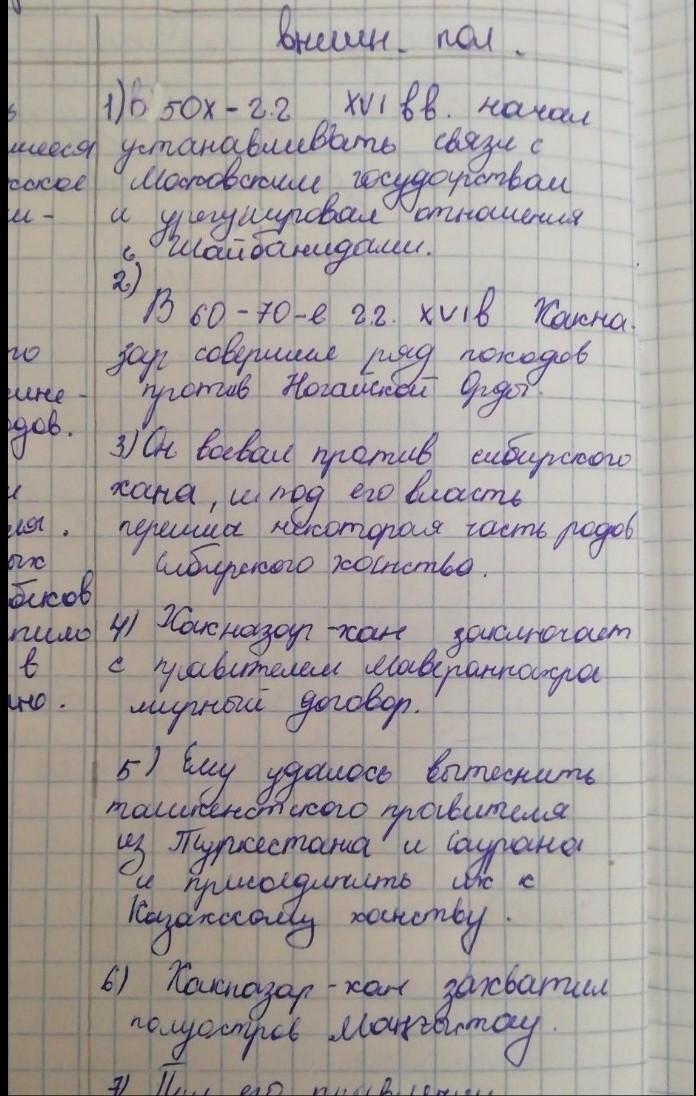 внешн. пол.
ь
1) В 50х-г.г XVI вв. начал
шиеся устанавливать связи с
сское Московским государствам
и- и урегулировал отношения
с Шайбанидами.
2)
В 60-70-е г.г. XVIв Хакна-
го зар совершил ряд походов
ине- против Ногайской Орды.
дов.
3) Он воевал против сибирского
и хана, и под его власть
ля. перешла некоторая часть родов
ых Сибирского ханства.
беков
пило 4) Хакназар-хан заключает
в с правителем Мавераннахра
но. мирный договор.
5) Ему удалось вытеснить
ташкенстского правителя
из Туркестана и Саурана
и присоединить их к
Казахскому ханству.
6) Хакназар-хан захватил
полуостров Маңғыстау.
7) При его правлении